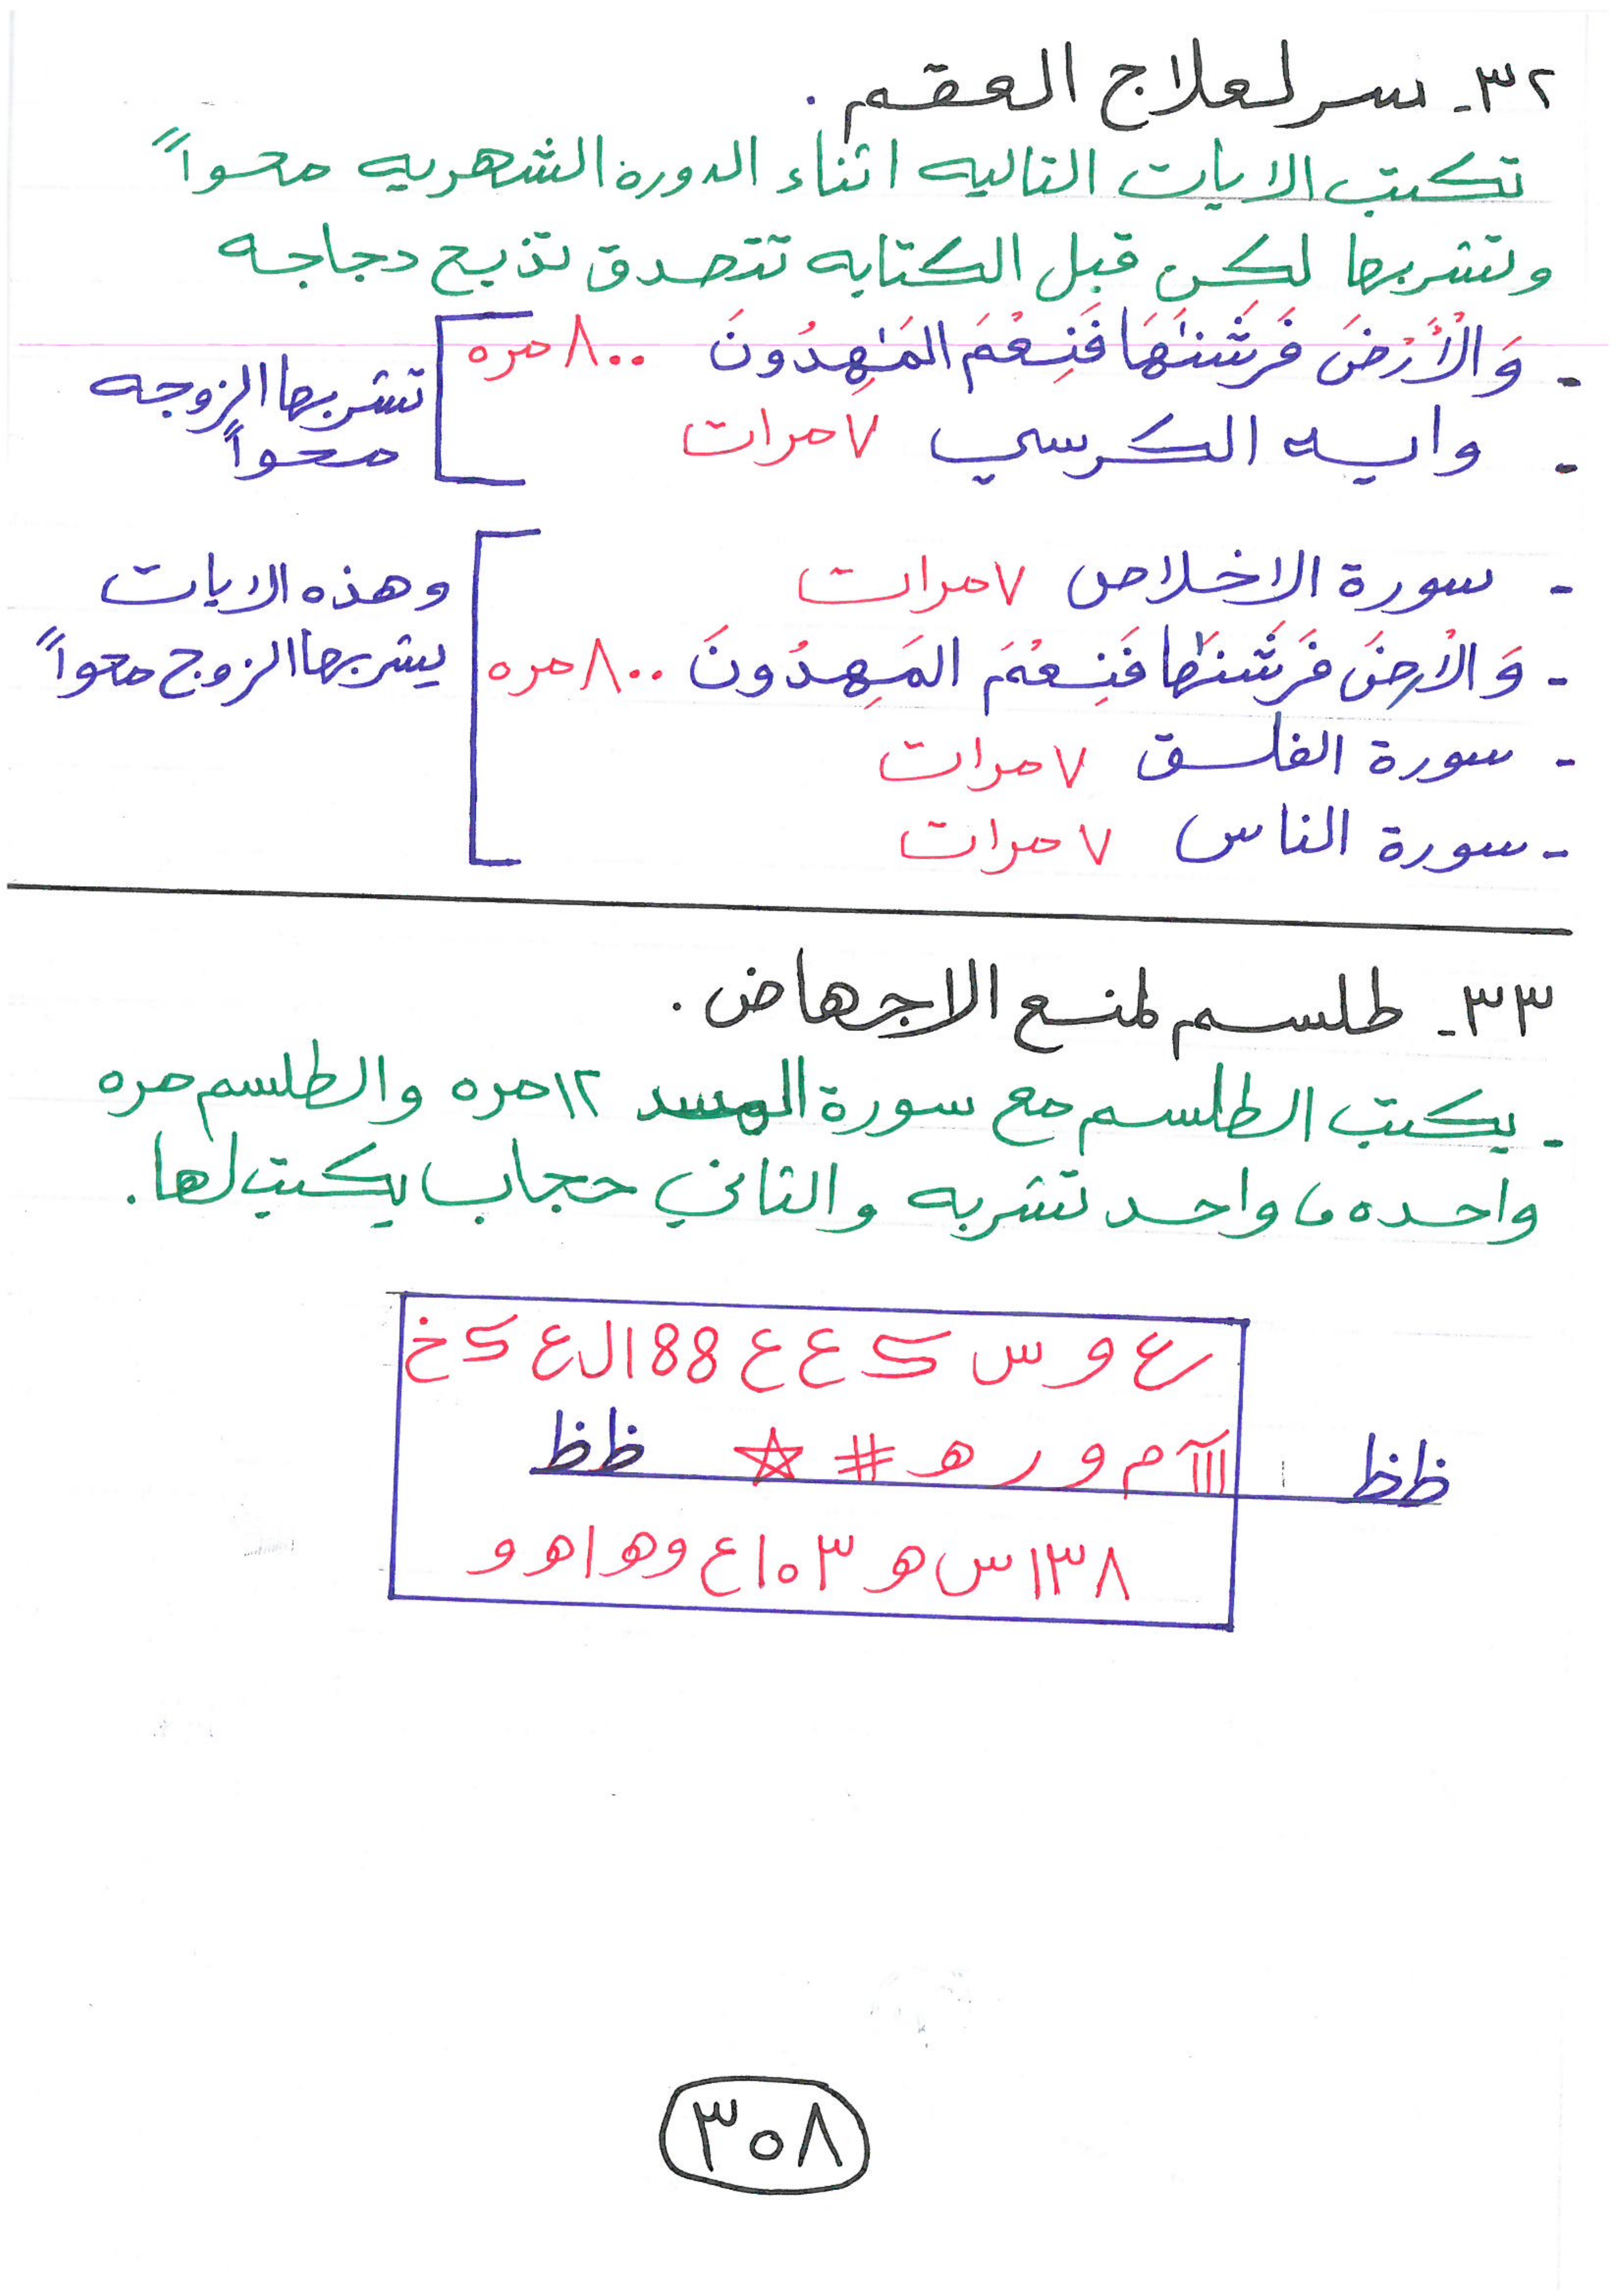 ٣٢- سر لعلاج العقم .
تكتب الايات التاليه اثناء الدورة الشهريه محواً
وتشربها لكن قبل الكتابه تتصدق بذبح دجاجه
- وَالْأَرْضَ فَرَشْنَٰهَا فَنِعْمَ المَٰهِدُونَ ٨٠٠ مره
- وايه الكرسي ٧ مرات
تشربها الزوجه
محواً
- سورة الاخلاص ٧ مرات
- وَالْأَرْضَ فَرَشْنَٰهَا فَنِعْمَ المَٰهِدُونَ ٨٠٠ مره
- سورة الفلق ٧ مرات
- سورة الناس ٧ مرات
وهذه الايات
يشربها الزوج محواً
٣٣- طلسم لمنع الاجهاض .
- يكتب الطلسم مع سورة المسد ١٢ مره والطلسم مره
واحده ، واحد تشربه والثاني حجاب يكتب لها .
ع و س ك ع ع 88 ا ل ع ك خ
ااا م و ر ه # ☆ ظظ
ظظ
١٣٨ س ه ٣ ١٠ ع و ه ا ه و
٣٠٨